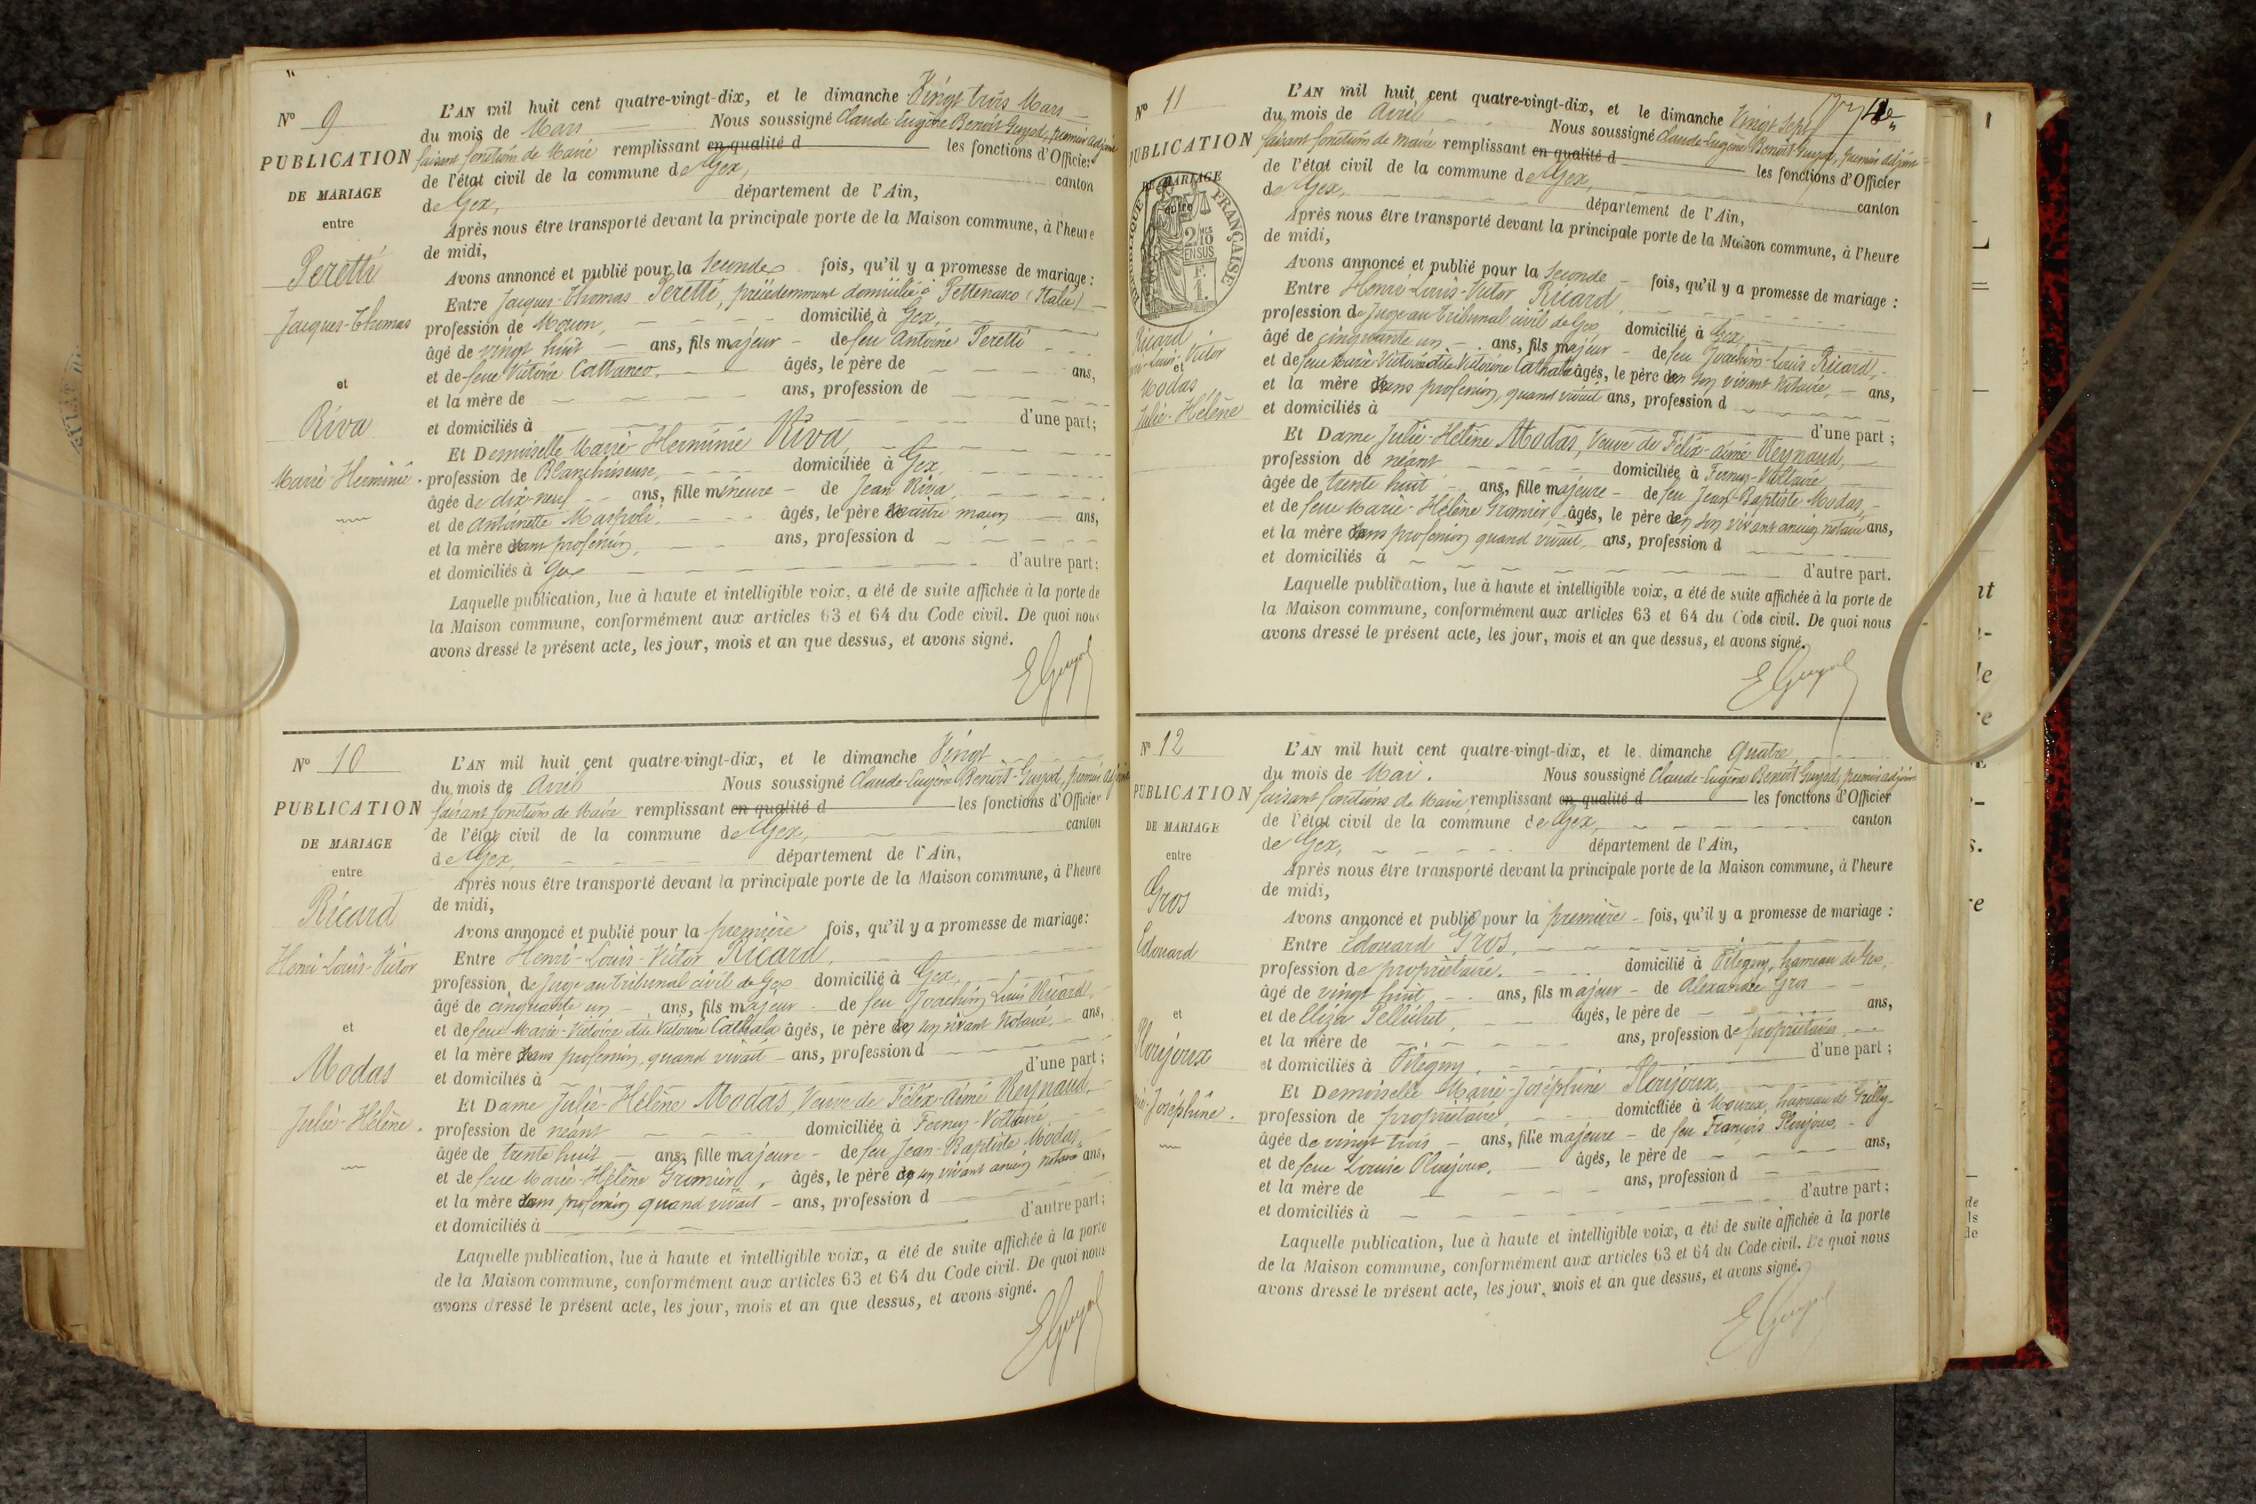 N° 9
PUBLICATION
DE MARIAGE
entre
Peretti
Jacques-Thomas
et
Riva
Marie-Herminie
L'AN mil huit cent quatre-vingt-dix, et le dimanche Vingt trois Mars
du mois de Mars Nous soussigné Claude-Eugène Benoît-Guyod, premier adjoint
faisant fonctions de Maire remplissant en qualité d les fonctions d'Officier
de l'état civil de la commune de Gex, canton
de Gex, département de l'Ain,
Après nous être transporté devant la principale porte de la Maison commune, à l'heure
de midi,
Avons annoncé et publié pour la seconde fois, qu'il y a promesse de mariage :
Entre Jacques-Thomas Peretti, précédemment domicilié à Pettenasco (Italie)
profession de Maçon, domicilié à Gex,
âgé de vingt huit ans, fils majeur de feu Antoine Peretti
et de feue Victoire Cattaneo, âgés, le père de ans,
et la mère de ans, profession de
et domiciliés à d'une part;
Et Demoiselle Marie-Herminie Riva,
profession de Blanchisseuse, domiciliée à Gex,
âgée de dix-neuf ans, fille mineure de Jean Riva,
et de Antoinette Maspoli, âgés, le père maître maçon ans,
et la mère sans profession, ans, profession d
et domiciliés à Gex d'autre part:
Laquelle publication, lue à haute et intelligible voix, a été de suite affichée à la porte de
la Maison commune, conformément aux articles 63 et 64 du Code civil. De quoi nous
avons dressé le présent acte, les jour, mois et an que dessus, et avons signé.
E Guyod
N° 10
PUBLICATION
DE MARIAGE
entre
Ricard
Henri-Louis-Victor
et
Modas
Julie-Hélène.
L'AN mil huit cent quatre-vingt-dix, et le dimanche Vingt
du mois de Avril Nous soussigné Claude-Eugène Benoît-Guyod, premier adjoint
faisant fonctions de Maire remplissant en qualité d les fonctions d'Officier
de l'état civil de la commune de Gex, canton
de Gex, département de l'Ain,
Après nous être transporté devant la principale porte de la Maison commune, à l'heure
de midi,
Avons annoncé et publié pour la première fois, qu'il y a promesse de mariage:
Entre Henri-Louis-Victor Ricard,
profession de Juge au Tribunal civil de Gex domicilié à Gex,
âgé de cinquante un ans, fils majeur de feu Joachim Louis Ricard,
et de feue Marie-Victoire, dite Victorine Cathala âgés, le père en son vivant Notaire, ans,
et la mère sans profession, quand vivait ans, profession d
et domiciliés à d'une part;
Et Dame Julie-Hélène Modas, Veuve de Félix-Aimé Reynaud,
profession de néant domiciliée à Ferney-Voltaire
âgée de trente huit ans, fille majeure de feu Jean-Baptiste Modas,
et de feue Marie-Hélène Gromier, âgés, le père en son vivant ancien notaire ans,
et la mère sans profession quand vivait ans, profession d
et domiciliés à d'autre part;
Laquelle publication, lue à haute et intelligible voix, a été de suite affichée à la porte
de la Maison commune, conformément aux articles 63 et 64 du Code civil. De quoi nous
avons dressé le présent acte, les jour, mois et an que dessus, et avons signé.
E Guyod
N° 11
PUBLICATION
DE MARIAGE
entre
RÉPUBLIQUE FRANÇAISE
2/10
EN SUS
F.
1.
Ricard
Louis-Victor
et
Modas
Julie-Hélène
L'AN mil huit cent quatre-vingt-dix, et le dimanche Vingt sept
du mois de Avril Nous soussigné Claude-Eugène Benoît-Guyod, premier adjoint
faisant fonctions de maire remplissant en qualité d les fonctions d'Officier
de l'état civil de la commune de Gex, canton
de Gex, département de l'Ain,
Après nous être transporté devant la principale porte de la Maison commune, à l'heure
de midi,
Avons annoncé et publié pour la Seconde fois, qu'il y a promesse de mariage :
Entre Henri-Louis-Victor Ricard,
profession de Juge au Tribunal civil de Gex domicilié à Gex,
âgé de cinquante un ans, fils majeur de feu Joachim-Louis Ricard,
et de feue Marie Victoire dite Victorine Cathala âgés, le père en son vivant Notaire, ans,
et la mère sans profession, quand vivait ans, profession d
et domiciliés à d'une part ;
Et Dame Julie-Hélène Modas, Veuve de Félix-Aimé Reynaud,
profession de néant domiciliée à Ferney-Voltaire
âgée de trente huit ans, fille majeure de feu Jean-Baptiste Modas,
et de feue Marie-Hélène Gromier âgés, le père en son vivant ancien notaire ans,
et la mère sans profession quand vivait, ans, profession d
et domiciliés à d'autre part.
Laquelle publication, lue à haute et intelligible voix, a été de suite affichée à la porte de
la Maison commune, conformément aux articles 63 et 64 du Code civil. De quoi nous
avons dressé le présent acte, les jour, mois et an que dessus, et avons signé.
E Guyod
N° 12
PUBLICATION
DE MARIAGE
entre
Gros
Edouard
et
Plonjoux
Joséphine.
L'AN mil huit cent quatre-vingt-dix, et le dimanche quatre
du mois de Mai. Nous soussigné Claude-Eugène Benoît Guyod, premier adjoint
faisant fonctions de Maire remplissant en qualité d les fonctions d'Officier
de l'état civil de la commune de Gex, canton
de Gex, département de l'Ain,
Après nous être transporté devant la principale porte de la Maison commune, à l'heure
de midi,
Avons annoncé et publié pour la première fois, qu'il y a promesse de mariage :
Entre Edouard Gros,
profession de propriétaire. domicilié à Pitegny, hameau de Gex,
âgé de vingt huit ans, fils majeur de Alexandre Gros
et de Eliza Pellichet, âgés, le père de ans,
et la mère de ans, profession de propriétaires
et domiciliés à Pitegny, d'une part ;
Et Demoiselle Marie-Joséphine Plonjoux,
profession de propriétaire, domiciliée à Mourex, hameau de Grilly
âgée de vingt trois ans, fille majeure de feu François Plonjoux,
et de feue Louise Plonjoux, âgés, le père de ans,
et la mère de ans, profession d
et domiciliés à d'autre part ;
Laquelle publication, lue à haute et intelligible voix, a été de suite affichée à la porte
de la Maison commune, conformément aux articles 63 et 64 du Code civil. De quoi nous
avons dressé le présent acte, les jour, mois et an que dessus, et avons signé.
E Guyod